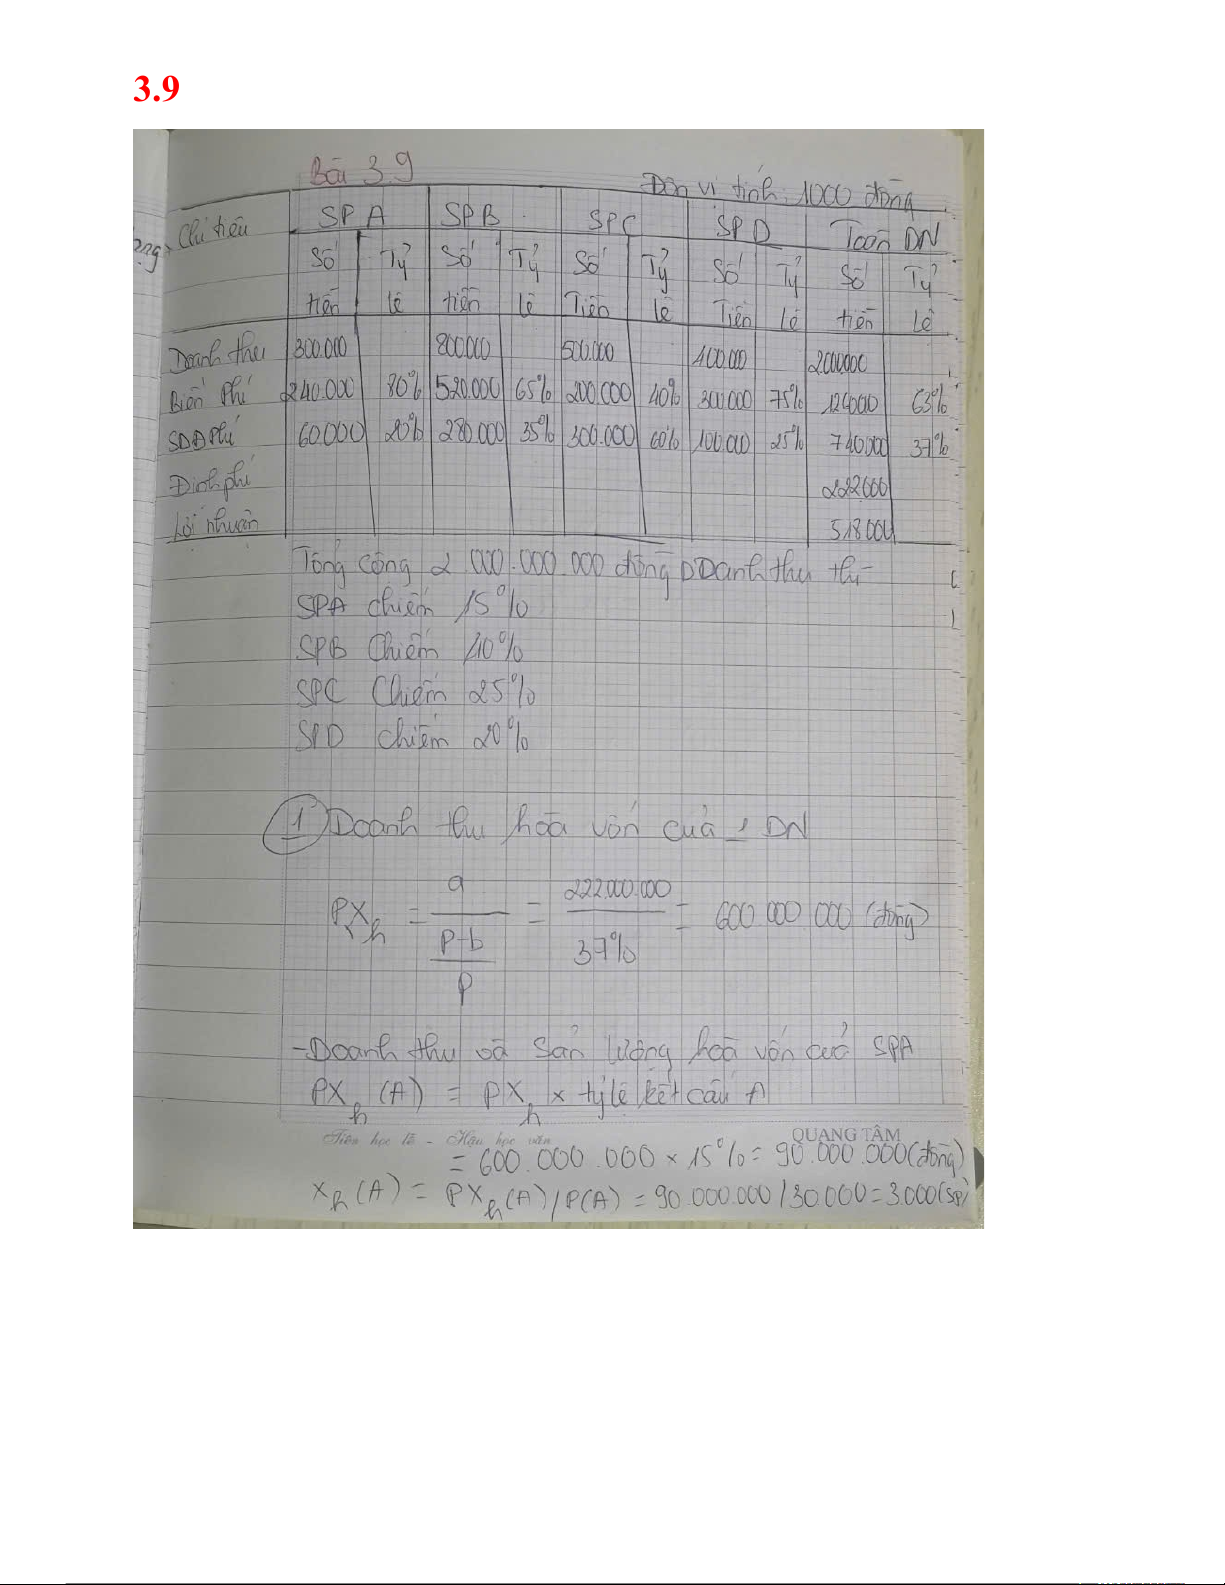 3.9
Bài 3.9
Đơn vị tính: 1000 đồng
Chỉ tiêu SPA SPB SPC SPD Toàn DN
Số tiền Tỷ lệ Số tiền Tỷ lệ Số Tiền Tỷ lệ Số Tiền Tỷ lệ Số tiền Tỷ lệ
Doanh thu 300.000 800.000 500.000 400.000
Biến Phí 240.000 80% 520.000 65% 200.000 40% 300.000 75% 63%
SDĐPhí 60.000 20% 280.000 35% 300.000 60% 100.000 25% 740.000 37%
Định phí 222.000
Lợi nhuận 518.000
Tổng cộng 2.000.000.000 đồng Doanh thu thì
SPA chiếm 15%
SPB Chiếm 40%
SPC Chiếm 25%
SPD chiếm 20%
1 Doanh thu hoà vốn của DN
PXh = a / ((P-b)/P) = 222.000.000 / 37% = 600.000.000 (đồng)
-Doanh thu và Sản lượng hoà vốn của SPA
PXh (A) = PXh × tỷ lệ kết cấu A
Tiên học lễ - Hậu học văn QUANG TÂM
= 600.000.000 × 15% = 90.000.000 (đồng)
Xh (A) = PXh (A) / P(A) = 90.000.000 / 30.000 = 3.000 (SP)